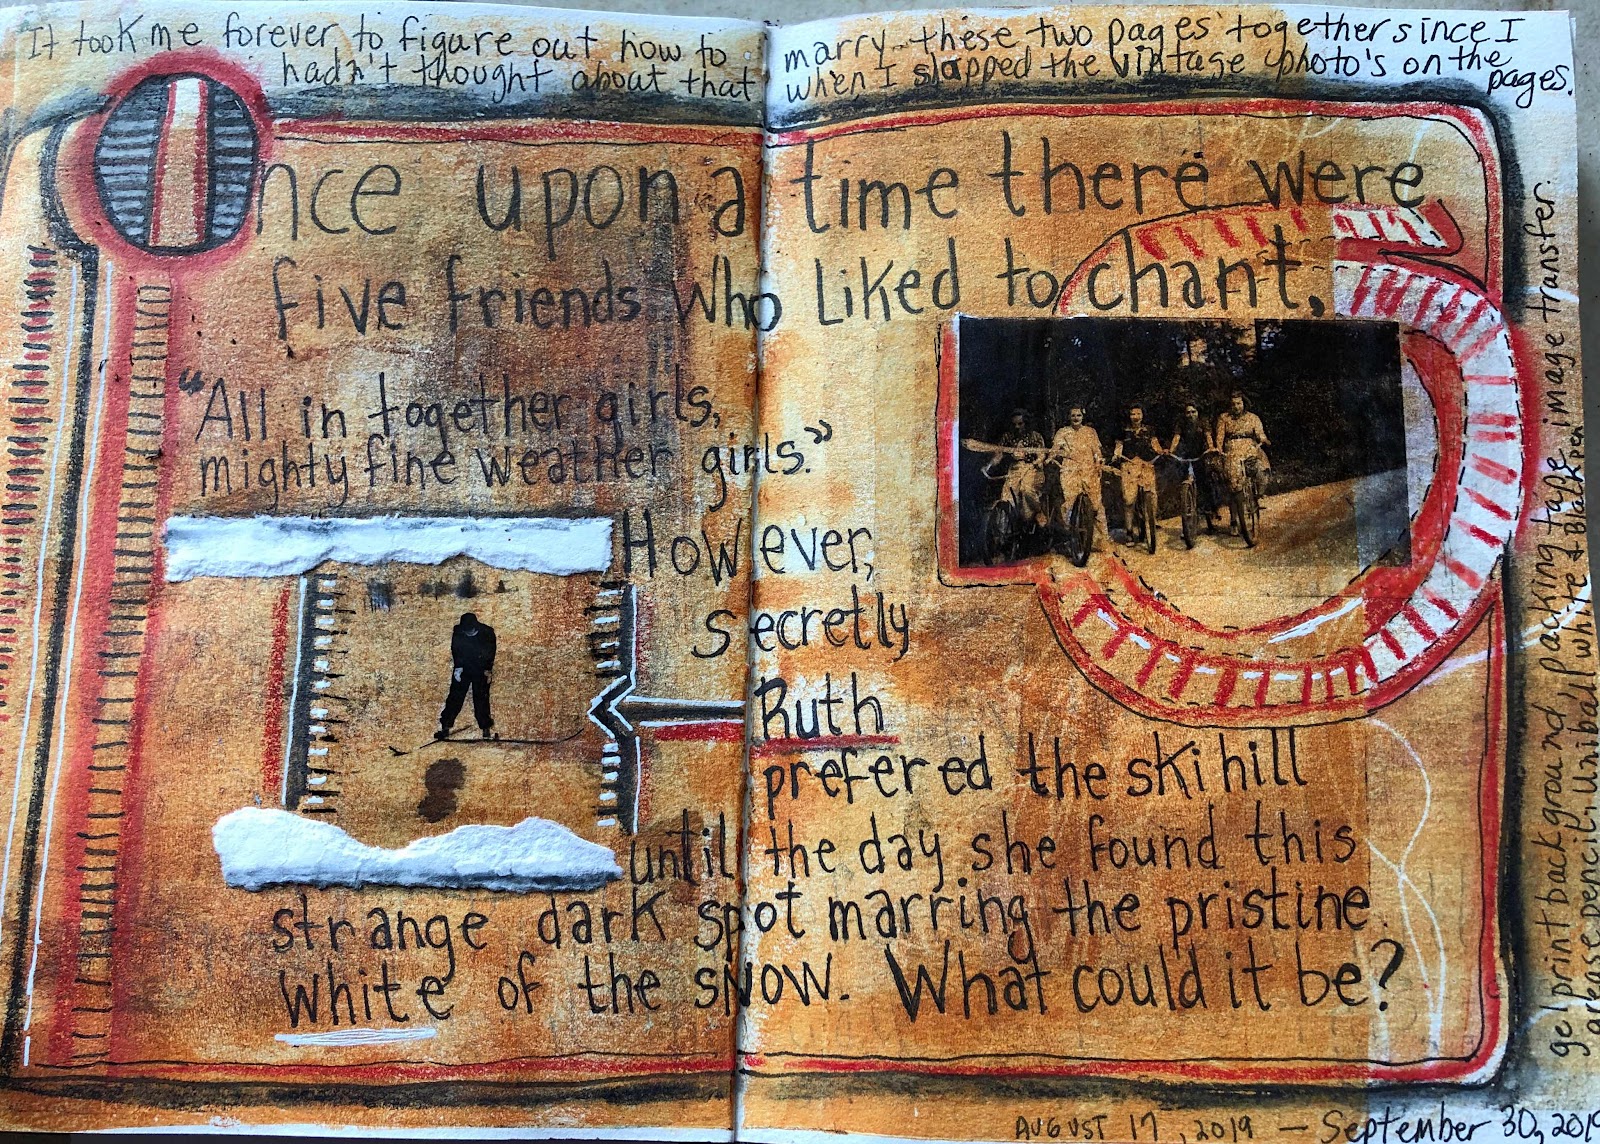 It took me forever to figure out how to marry these two pages together since I
hadn't thought about that when I slapped the vintage photo's on the
pages.
Once upon a time there were
five friends who liked to chant,
"All in together girls,
mighty fine weather girls."
However,
secretly
Ruth
prefered the ski hill
until the day she found this
strange dark spot marring the pristine
white of the snow. What could it be?
gel print background, packing tape image transfer.
grease pencil, Uniball white & Black pen
AUGUST 17, 2019 — September 30, 2019